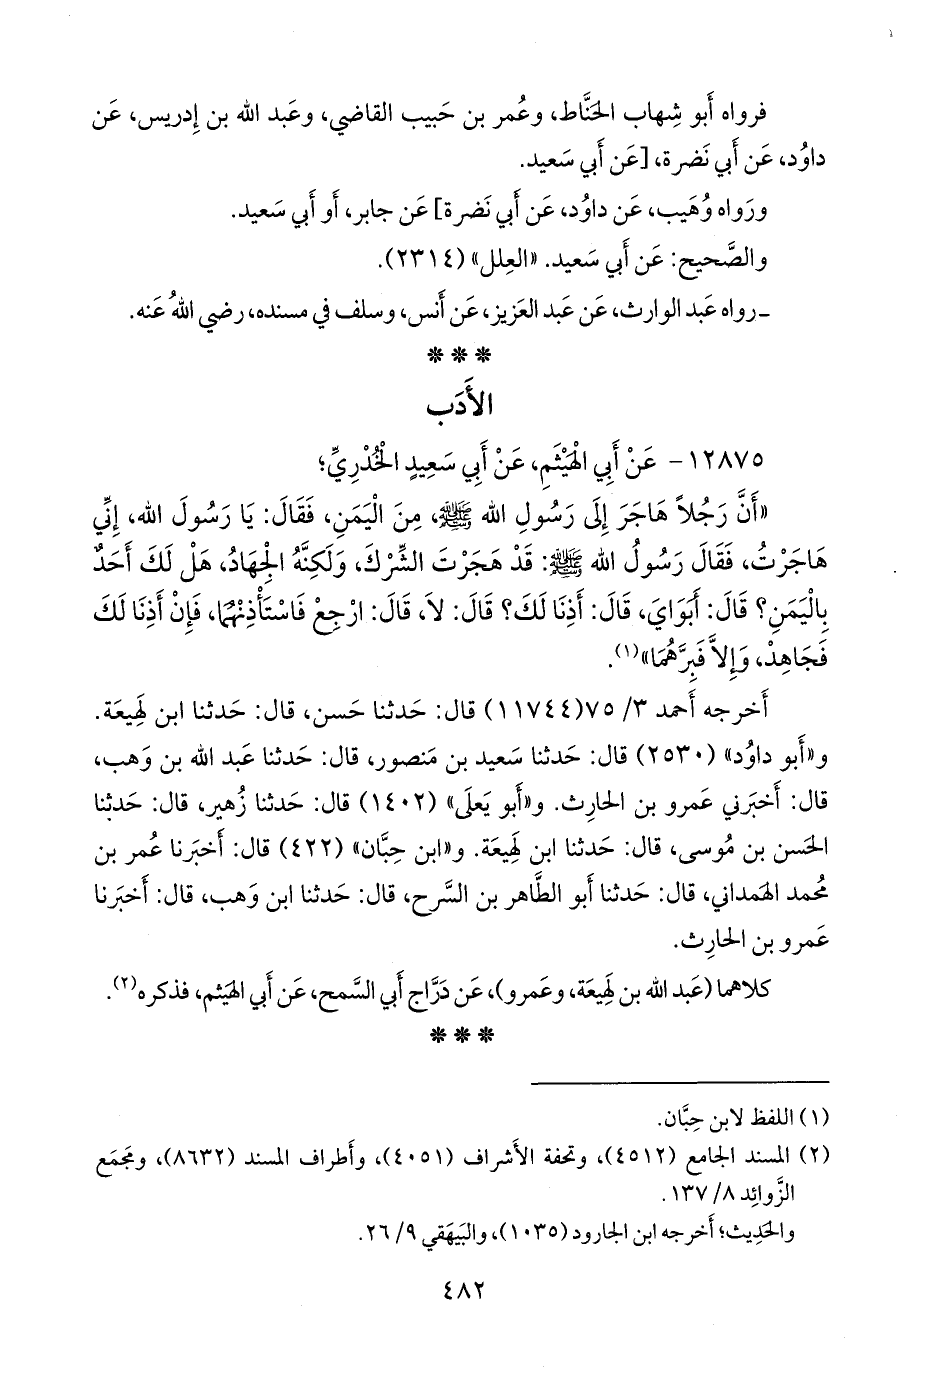 فرواه أَبو شِهاب الحَنَّاط، وعُمر بن حَبيب القاضي، وعَبد الله بن إِدريس، عَن
داوُد، عَن أَبي نَضرة، [عَن أَبي سَعيد.
ورَواه وُهَيب، عَن داوُد، عَن أَبي نَضرة] عَن جابر، أَو أَبي سَعيد.
والصَّحيح: عَن أَبي سَعيد. «العِلل» (٢٣١٤).
ـ رواه عَبد الوارث، عَن عَبد العَزيز، عَن أَنس، وسلف في مسنده، رضي اللهُ عَنه.
* * *
الأَدَب
١٢٨٧٥ - عَنْ أَبِي الْهَيْثَمِ، عَنْ أَبِي سَعِيدٍ الْخُدْرِيِّ؛
«أَنَّ رَجُلاً هَاجَرَ إِلَى رَسُولِ الله ﷺ، مِنَ الْيَمَنِ، فَقَالَ: يَا رَسُولَ الله، إِنِّي
هَاجَرْتُ، فَقَالَ رَسُولُ الله ﷺ: قَدْ هَجَرْتَ الشِّرْكَ، وَلَكِنَّهُ الْجِهَادُ، هَلْ لَكَ أَحَدٌ
بِالْيَمَنِ؟ قَالَ: أَبَوَايَ، قَالَ: أَذِنَا لَكَ؟ قَالَ: لاَ، قَالَ: ارْجِعْ فَاسْتَأْذِنْهُمَا، فَإِنْ أَذِنَا لَكَ
فَجَاهِدْ، وَإِلاَّ فَبِرَّهُمَا»(١).
أَخرجه أَحمد ٣/ ٧٥(١١٧٤٤) قال: حَدثنا حَسن، قال: حَدثنا ابن لَهِيعَة.
و«أَبو داوُد» (٢٥٣٠) قال: حَدثنا سَعيد بن مَنصور، قال: حَدثنا عَبد الله بن وَهب،
قال: أَخبَرني عَمرو بن الحارِث. و«أَبو يَعلَى» (١٤٠٢) قال: حَدثنا زُهير، قال: حَدثنا
الحَسن بن مُوسى، قال: حَدثنا ابن لَهِيعَة. و«ابن حِبَّان» (٤٢٢) قال: أَخبَرنا عُمر بن
مُحمد الهَمداني، قال: حَدثنا أَبو الطَّاهر بن السَّرح، قال: حَدثنا ابن وَهب، قال: أَخبَرنا
عَمرو بن الحارِث.
كلاهما (عَبد الله بن لَهِيعَة، وعَمرو)، عَن دَرَّاج أَبي السَّمح، عَن أَبي الهَيثم، فذكره(٢).
* * *
(١) اللفظ لابن حِبَّان.
(٢) المسند الجامع (٤٥١٢)، وتحفة الأَشراف (٤٠٥١)، وأَطراف المسند (٨٦٣٢)، ومَجمَع
الزَّوائِد ٨/ ١٣٧.
والحَدِيث؛ أَخرجه ابن الجارود (١٠٣٥)، والبَيهَقي ٩/ ٢٦.
٤٨٢